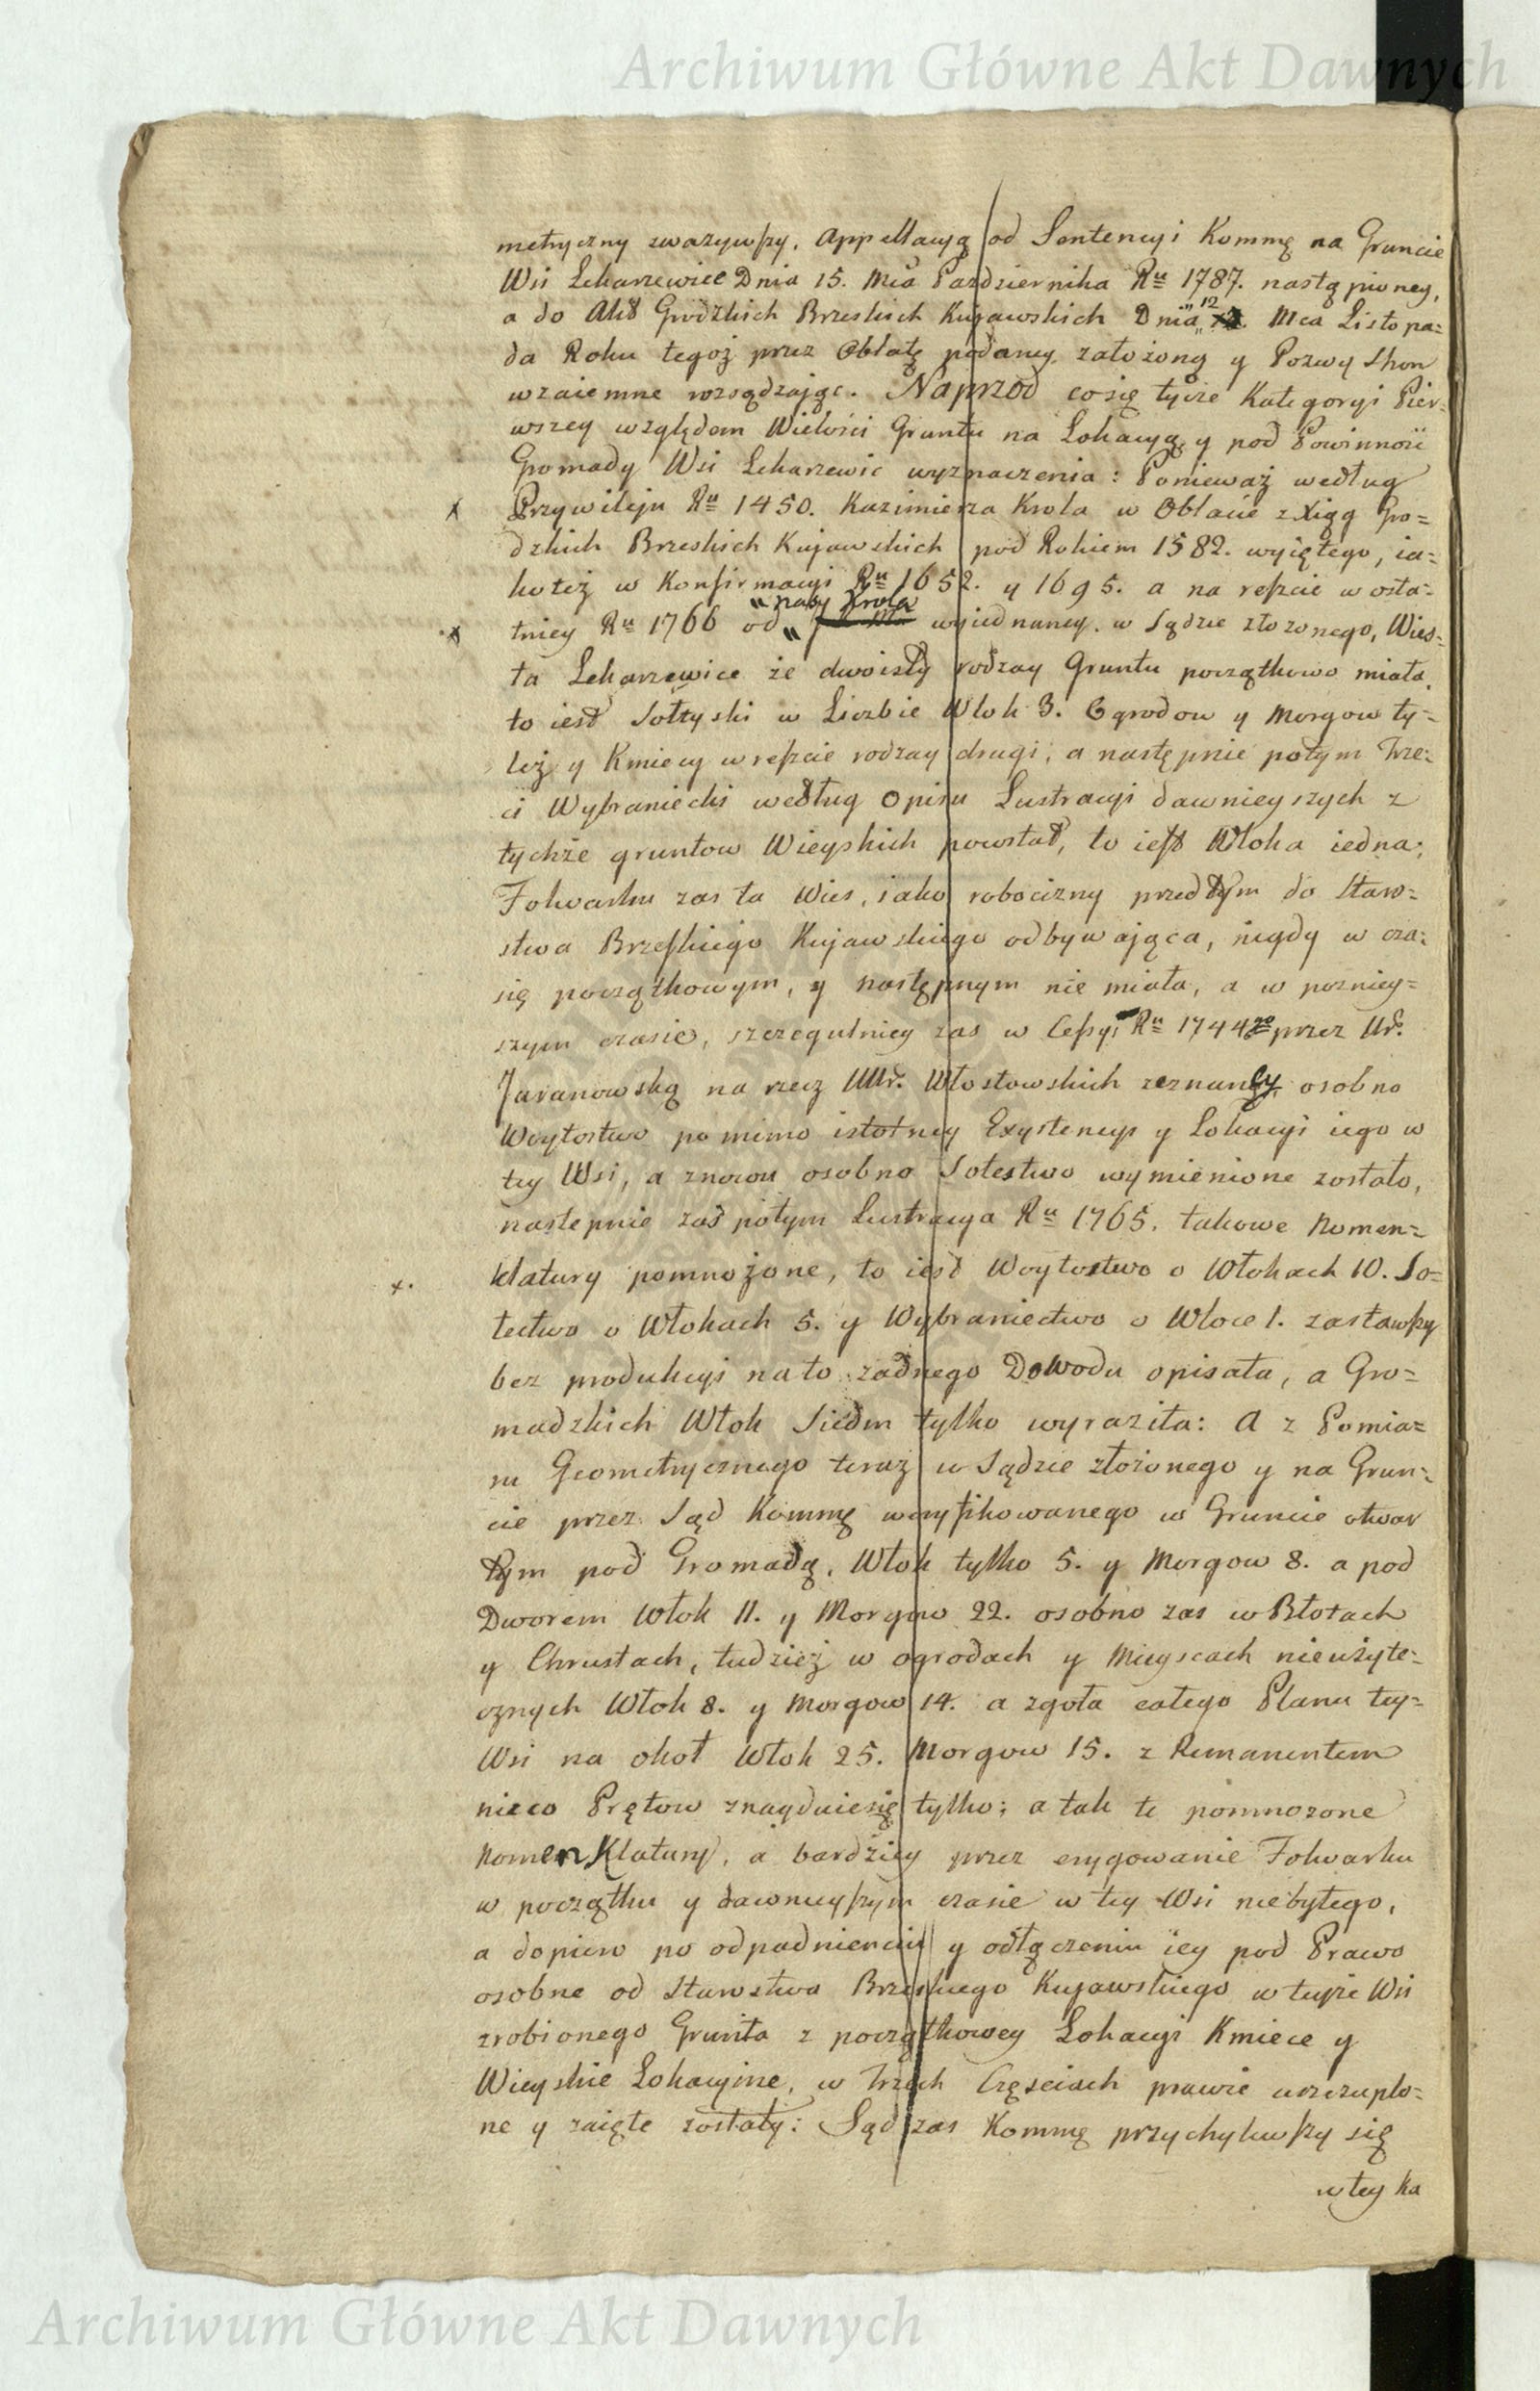 Archiwum Główne Akt Dawnych
metryczny zwazywſzy, Appellacyą od Sentencyi Kommę na Gruncie
Wsi Lekarzewice Dnia 15. Mca Pazdziernika Ru 1787. nastąpioney,
a do Akt Grodzkich Brzeskich Kujawskich Dnia 12 Mca Listopa=
da Roku tegoż przez Oblatę podaney, założoną y Pozwy Stron
wzaiemne rozsądzaiąc. Naprzod co się tycze Kategoryi Pier=
wszey względem Wielości Gruntu na Lokacyą y pod Powinność
Gromady Wsi Lekarzewic wyznaczenia: Ponieważ według
x Przywileju Ru 1450. Kazimierza Krola w Oblacie z Xiąg Gro=
dzkich Brzeskich Kujawskich pod Rokiem 1582. wyiętego, ia=
koteż w Konfirmacyi Ru 1652. y 1695. a na reſzcie w osta=
x tniey Ru 1766 od naszy Krola wyiednaney, w Sądzie złożonego, Wieś
ta Lekarzewice że dwoisty rodzay Gruntu początkowo miała,
to iest Sołtyski w Liczbie Włok 3. Ogrodow y Morgow ty=
leż y Kmiecy w reſzcie rodzay drugi, a następnie potym Trze=
ci Wybraniecki według Opisu Lustracyi dawnieyszych z
tychże gruntow Wieyskich powstał, to ieſt Włoka iedna;
Folwarku zas ta Wies, iako robocizny przedtym do Staro=
stwa Brzeſkiego Kujawskiego odbywaiąca, nigdy w cza=
się początkowym, y następnym nie miała, a w pozniey=
szym czasie, szczegulniey zas w Ceſsyi Ru 1744go przez Ur.
Jaranowską na rzecz UUr. Włostowskich zeznaney, osobno
Woytostwo pomimo istotney Exystencyi y Lokacyi iego w
tey Wsi, a znowu osobno Sołestwo wymienione zostało,
następnie zaś potym Lustracya Ru 1765. takowe Nomen=
x. klatury pomnożone, to iest Woytostwo o Włokach 10. So=
łectwo o Włokach 5. y Wybraniectwo o Włoce 1. zastawſzy
bez produkcyi na to żadnego Dowodu opisała, a Gro=
madzkich Włok Siedm tylko wyraziła: A z Pomia=
ru Geometrycznego teraz w Sądzie złożonego y na Grun=
cie przez Sąd Kommę weryfikowanego w Gruncie otwar
tym pod Gromadą, Włok tylko 5. y Morgow 8. a pod
Dworem Włok 11. y Morgow 22. osobno zas w Błotach
y Chrustach, tudzież w ogrodach y Mieyscach nieużyte=
cznych Włok 8. y Morgow 14. a zgoła całego Planu tey=
Wsi na okoł Włok 25. Morgow 15. z Remanentem
nieco Prętow znayduie się tylko; a tak te pomnożone
Nomenklatury, a bardziey przez erygowanie Folwarku
w początku y dawnieyſzym czasie w tey Wsi niebyłego,
a dopiero po odpadnieniu y odłączeniu iey pod Prawo
osobne od Starostwa Brzeskiego Kujawskiego w teyże Wsi
zrobionego Grunta z początkowey Lokacyi Kmiece y
Wieyskie Lokacyine, w Trzech Częsciach prawie uszczuplo=
ne y zaięte zostały: Sąd zas Kommę przychyliwſzy się
w tey Ka
Archiwum Główne Akt Dawnych